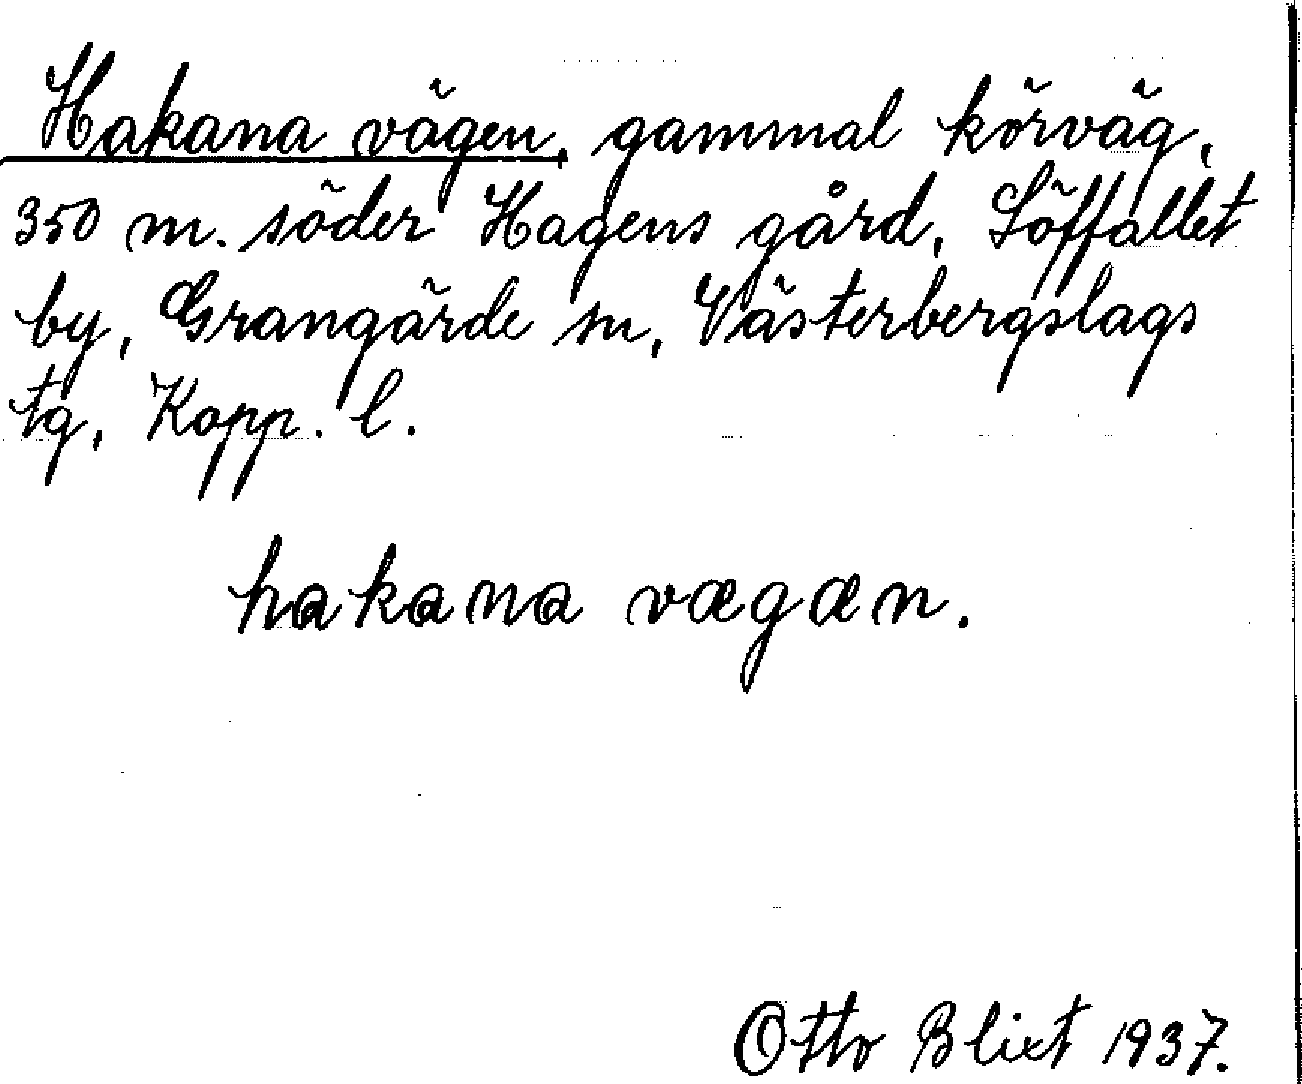 Hakana vägen, gammal körväg,
350 m. söder Hagens gård, Löffallet
by, Grangärde sn, Västerbergslags
tg, Kopp. l.
hakana vægæn.
Otto Blixt 1937.